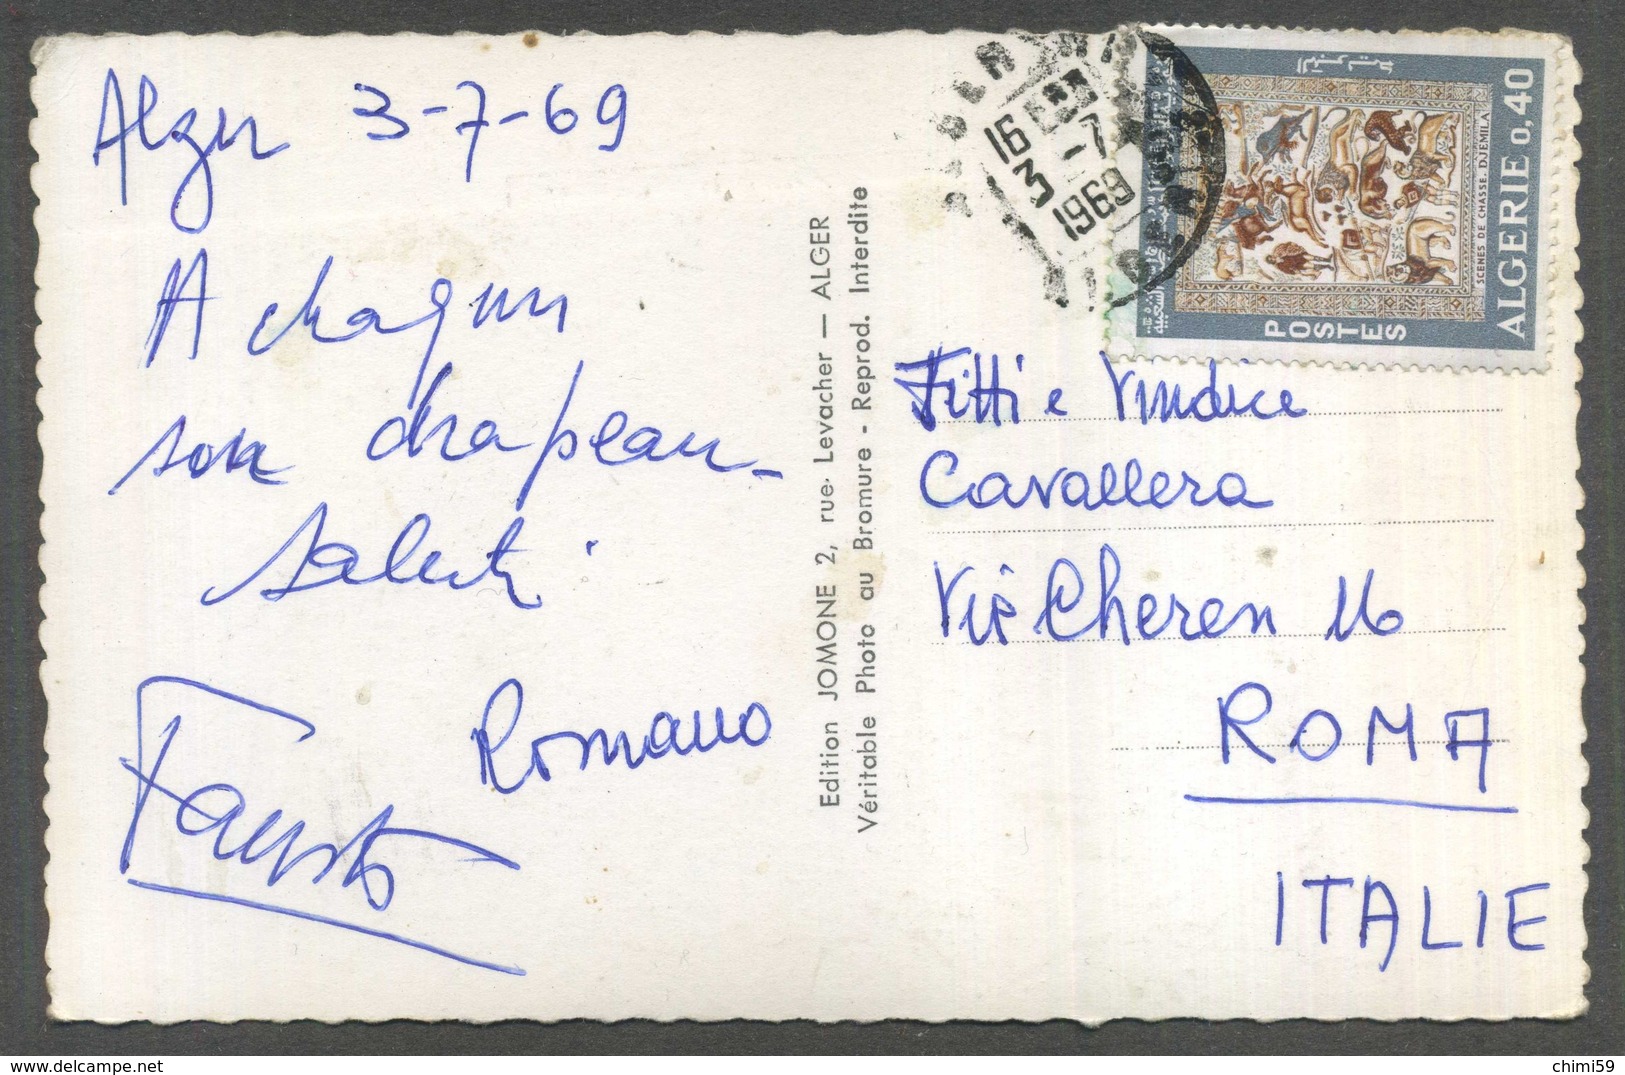 Alger 3-7-69
A chaqun
son chapeau -
saluti.
Romano
Fausto
Edition JOMONE 2, rue. Levacher — ALGER
Véritable Photo au Bromure - Reprod. Interdite
16
3 -7
1969
ALGERIE 0,40
POSTES
SCENES DE CHASSE. DJEMILA
Fitti e Vindice
Cavallera
Via Cheren 16
ROMA
ITALIE
chimi59